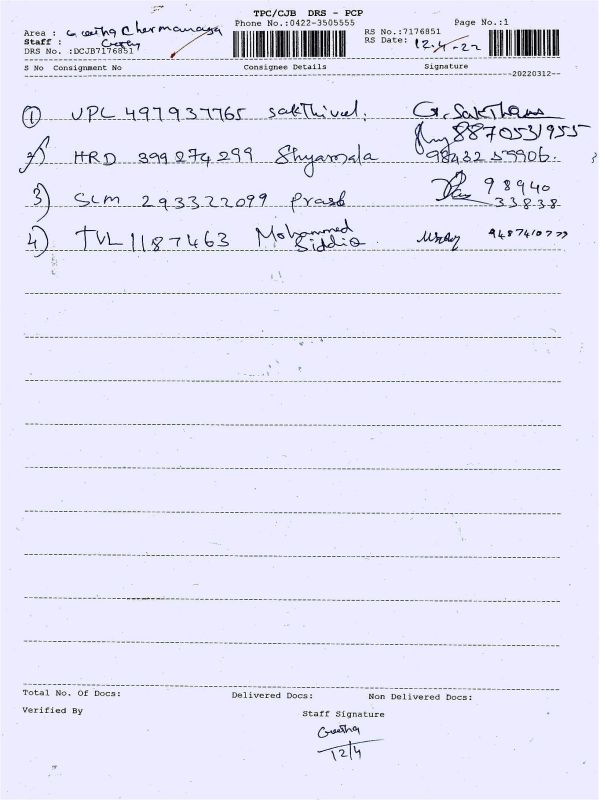 TPC/CJB DRS - PCP
Phone No.:0422-3505555
Page No.:1
Area : Geetha
Staff : Geetha
DRS No. :DCJB7176851
RS No.:7176851
RS Date: 12-4-22
S No Consignment No Consignee Details Signature
--20220312--
1 UPL 497937765 sakthivel. G. Sakthi
8870531955
2) HRD 399274299 Shyamala 98432 59906.
3) SLM 293322099 Prasb 98940
33838
4) TVL 1187463 Mohammed
Siddiq
Total No. Of Docs: Delivered Docs: Non Delivered Docs:
Verified By
Staff Signature
Geetha
12/4